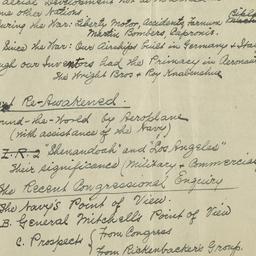 aerial Development not
some other Nations
During the War: Liberty Motor, Accidents, Farnum
Martin Bombers, Capronis.
Since the War: Our Airships built in Germany & Ita
ugh our Inventors had the Primacy in Aerona
The Wright Bros & Roy Knabenshue
Re-Awakened.
ound-the-World by Aeroplane
(with assistance of the Navy)
Z.R.2 "Shenandoah" and "Los Angeles"
Their significance (Military & Commercia
The Recent Congressional Enquiry
The Navy's Point of View.
B. General Mitchell's Point of View
C. Prospects { From Congress
From Rickenbacker's Group.